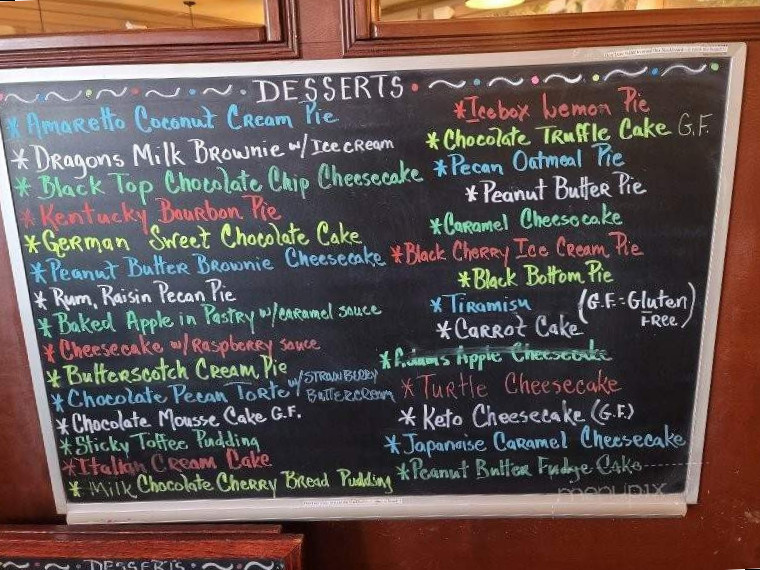 DESSERTS
* Amaretto Coconut Cream Pie
* Dragons Milk Brownie w/ Ice cream
* Black Top Chocolate Chip Cheesecake
* Kentucky Bourbon Pie
* German Sweet Chocolate Cake
* Peanut Butter Brownie Cheesecake
* Rum, Raisin Pecan Pie
* Baked Apple in Pastry w/caramel sauce
* Cheesecake w/Raspberry sauce
* Butterscotch Cream Pie
* Chocolate Pecan Torte w/ STRAWBERRY Buttercream
* Chocolate Mousse Cake G.F.
* Sticky Toffee Pudding
* Italian Cream Cake
* Milk Chocolate Cherry Bread Pudding
* Icebox Lemon Pie
* Chocolate Truffle Cake G.F.
* Pecan Oatmeal Pie
* Peanut Butter Pie
* Caramel Cheesecake
* Black Cherry Ice Cream Pie
* Black Bottom Pie
* Tiramisu
(G.F. = Gluten Free)
* Carrot Cake
* Apple Cheesecake
* Turtle Cheesecake
* Keto Cheesecake (G.F.)
* Japanaise Caramel Cheesecake
* Peanut Butter Fudge Cake
menupix
DESSERTS